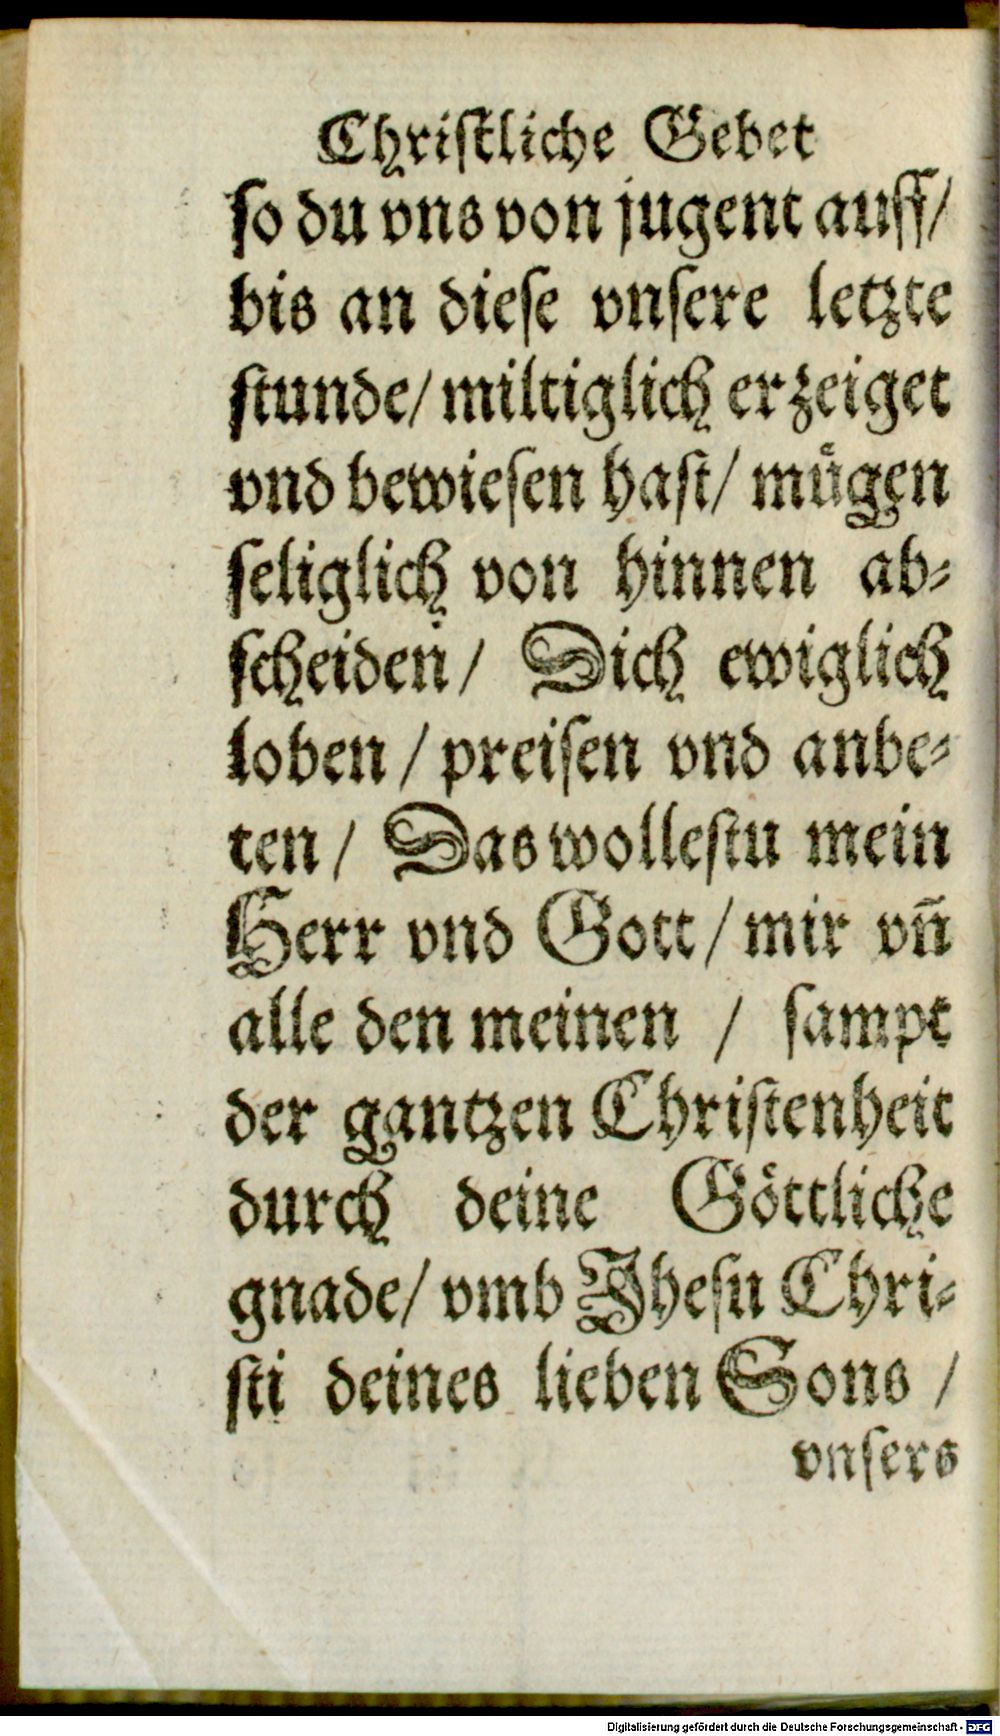 Christliche Gebet
so du vns von jugent auff/
bis an diese vnsere letzte
stunde/ miltiglich erzeiget
vnd bewiesen hast/ mügen
seliglich von hinnen ab⸗
scheiden/ Dich ewiglich
loben / preisen vnd anbe⸗
ten / Das wollestu mein
Herr vnd Gott / mir vn̄
alle den meinen / sampt
der gantzen Christenheit
durch deine Göttliche
gnade/ vmb Jhesu Chri⸗
sti deines lieben Sons /
vnsers
Digitalisierung gefördert durch die Deutsche Forschungsgemeinschaft - DFG